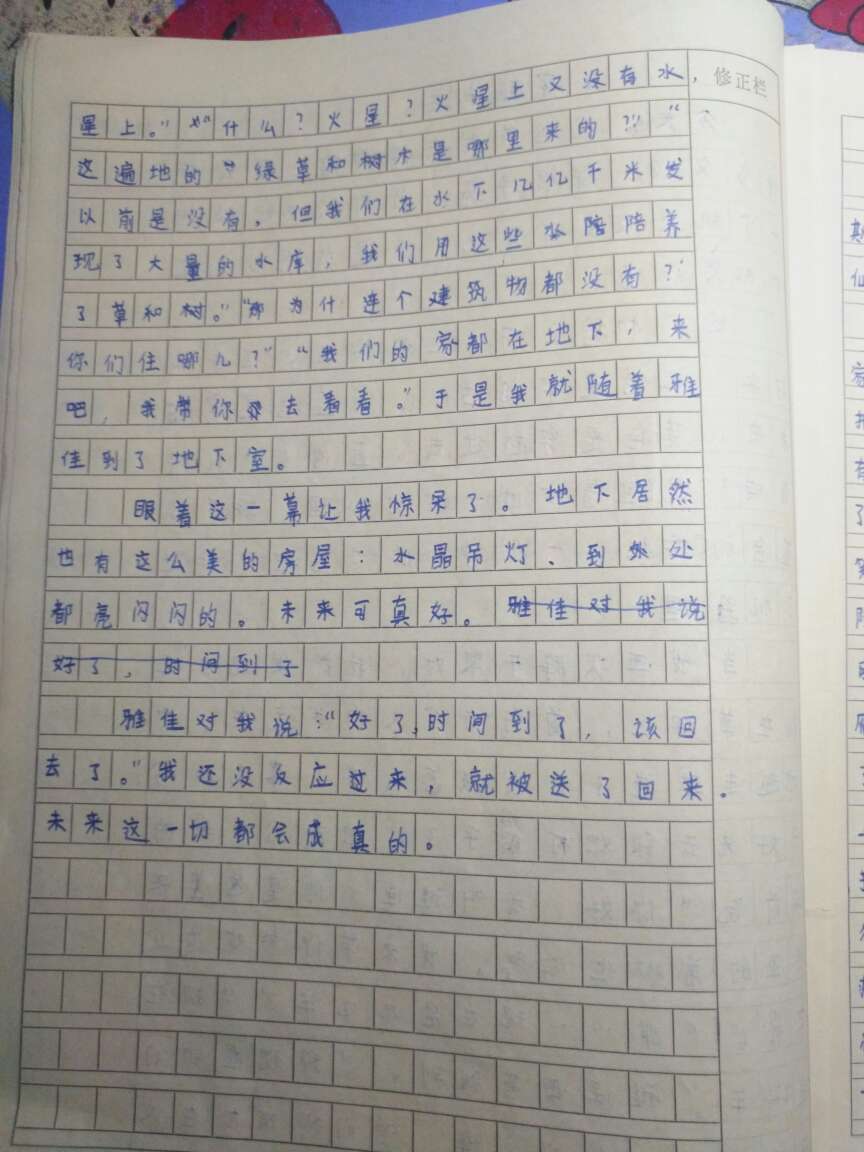 修正栏
星上。”“什么？火星？火星上又没有水，
这遍地的绿草和树木是哪里来的？”“
以前是没有，但我们在水下亿亿千米发
现了大量的水库，我们用这些水陪陪养
了草和树。”“那为什连个建筑物都没有？
你们住哪儿？”“我们的家都在地下，来
吧，我带你去看看。”于是我就随着雅
佳到了地下室。
眼着这一幕让我惊呆了。地下居然
也有这么美的房屋：水晶吊灯、到处
都亮闪闪的。未来可真好。雅佳对我说：
好了，时间到了
雅佳对我说：“好了，时间到了，该回
去了。”我还没反应过来，就被送了回来。
未来这一切都会成真的。